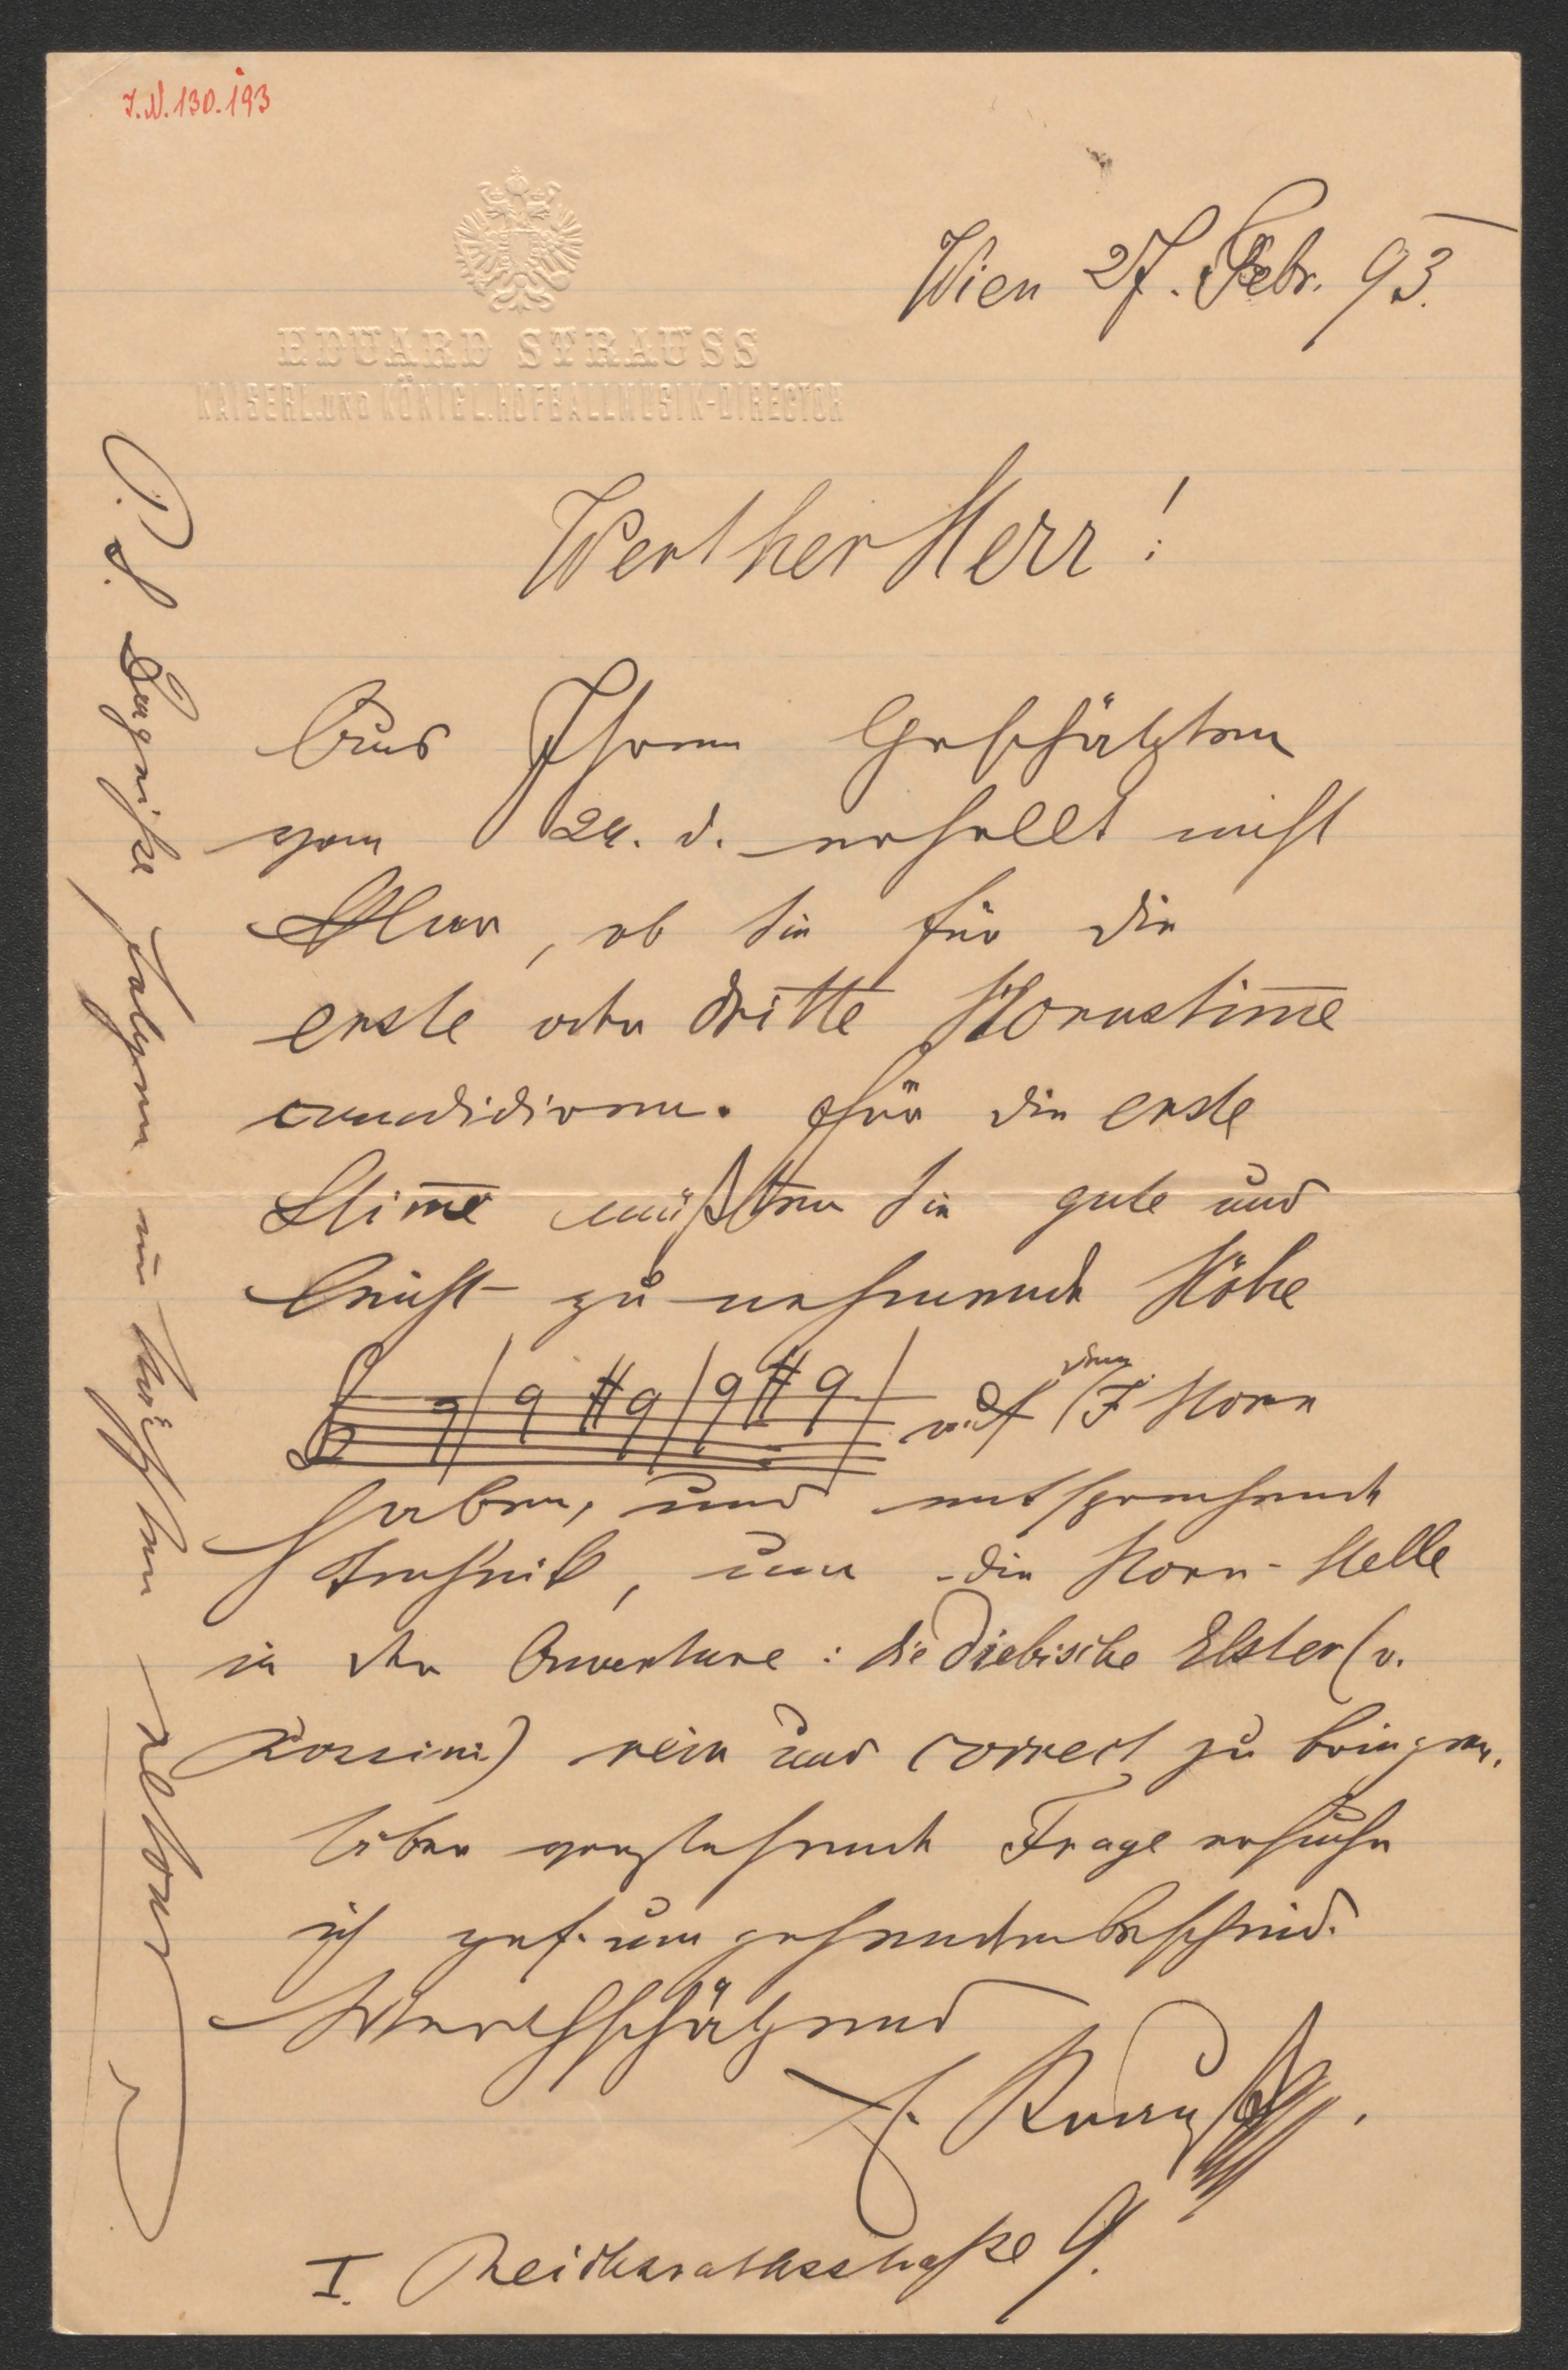 I.N. 130.193
EDUARD STRAUSS
KAISERL. UND KÖNIGL. HOFBALLMUSIK-DIRECTOR
Wien 27. Febr. 93.
Werther Herr!
Aus Ihrem Geschätzten
vom 24. d. erhellt nicht
klar, ob Sie für die
erste oder dritte Hornstim̅e
candidiren. Für die erste
Stim̅e müßten Sie gute und
leicht zu nehmende Höhe
auf dem F Horn
haben, und entsprechende
Technik, um die Horn-Stelle
in der Ouverture: die diebische Elster (v.
Rossini) rein und correct zu bringen.
Über vorstehende Frage ersuche
ich gef. um gehenden Bescheid.
Werthschätzend
E. Strauß.
I. Reichsrathsstraße 9.
P.S. Zeugniße folgen im
retour